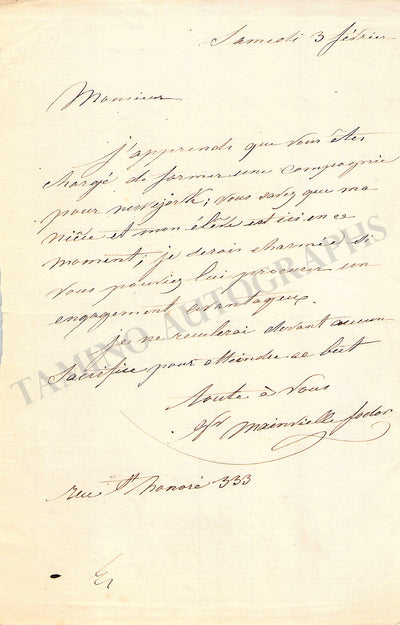 Samedi 3 février
Monsieur
j'apprends que vous êtes
chargé de former une compagnie
pour newyork; vous savez que ma
nièce et mon élève est ici en ce
moment; je serois charmée si
vous pouviez lui procurer un
engagement avantageux.
je ne reculerai devant aucun
sacrifice pour atteindre ce but
toute à vous
Mainvielle fodor
rue St honoré 333
TAMINO AUTOGRAPHS